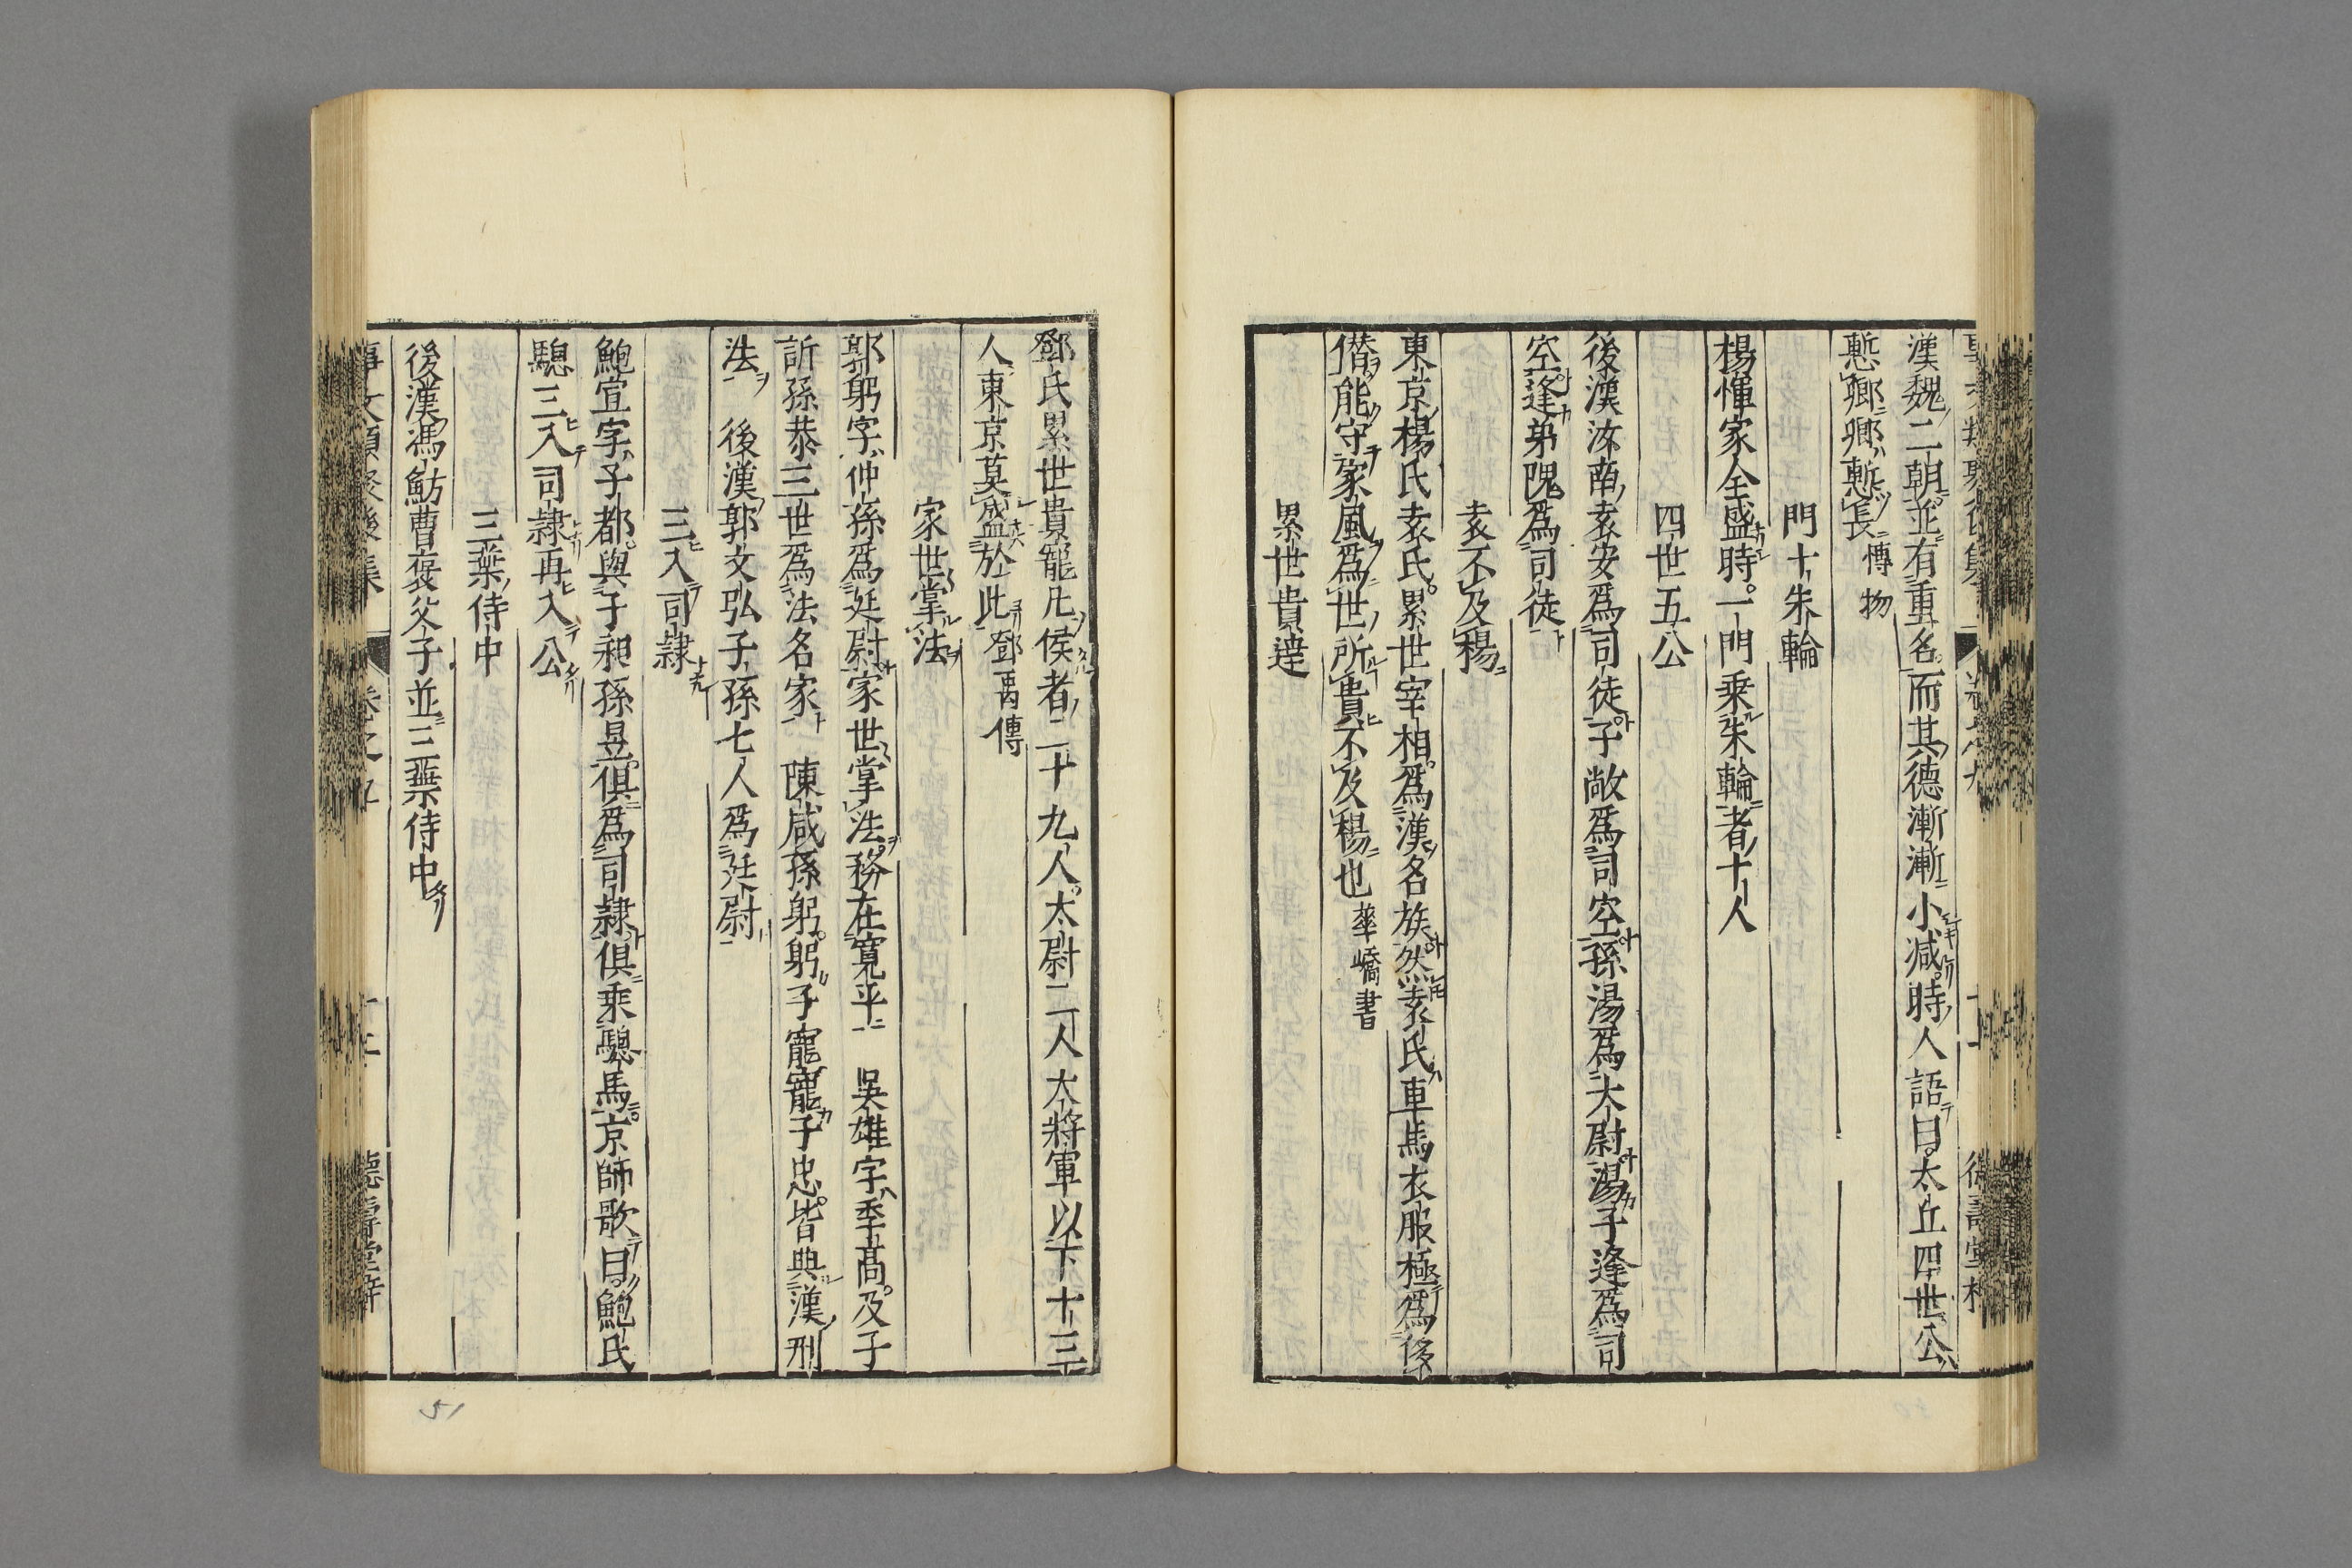 漢魏二朝並有重名而其德漸漸小减時人語曰太丘四世公
慙卿卿慙長 博物
門十朱輪
楊惲家全盛時一門乗朱輪者十人
四世五公
後漢汝南袁安爲司徒子敞爲司空孫湯爲太尉湯子逢爲司
空逢弟隗爲司徒
袁不及楊
東京楊氏袁氏累世宰相爲漢名族然袁氏車馬衣服極爲侈
僭能守家風爲世所貴不及楊也 華嶠書
累世貴達
鄧氏累世貴寵凡侯者二十九人太尉二人大將軍以下十三
人東京莫盛於此 鄧禹傳
家世掌法
郭躬字仲孫爲廷尉家世掌法務在寛平 吳雄字季髙及子
訢孫恭三世爲法名家 陳咸孫躬躬子寵寵子忠皆典漢刑
法 後漢郭文弘子孫七人爲廷尉
三入司隷
鮑宣字子都與子昶孫昱俱爲司隷俱乗驄馬京師歌曰鮑氏
驄三入司隷再入公
三葉侍中
後漢馮魴曹褒父子並三葉侍中